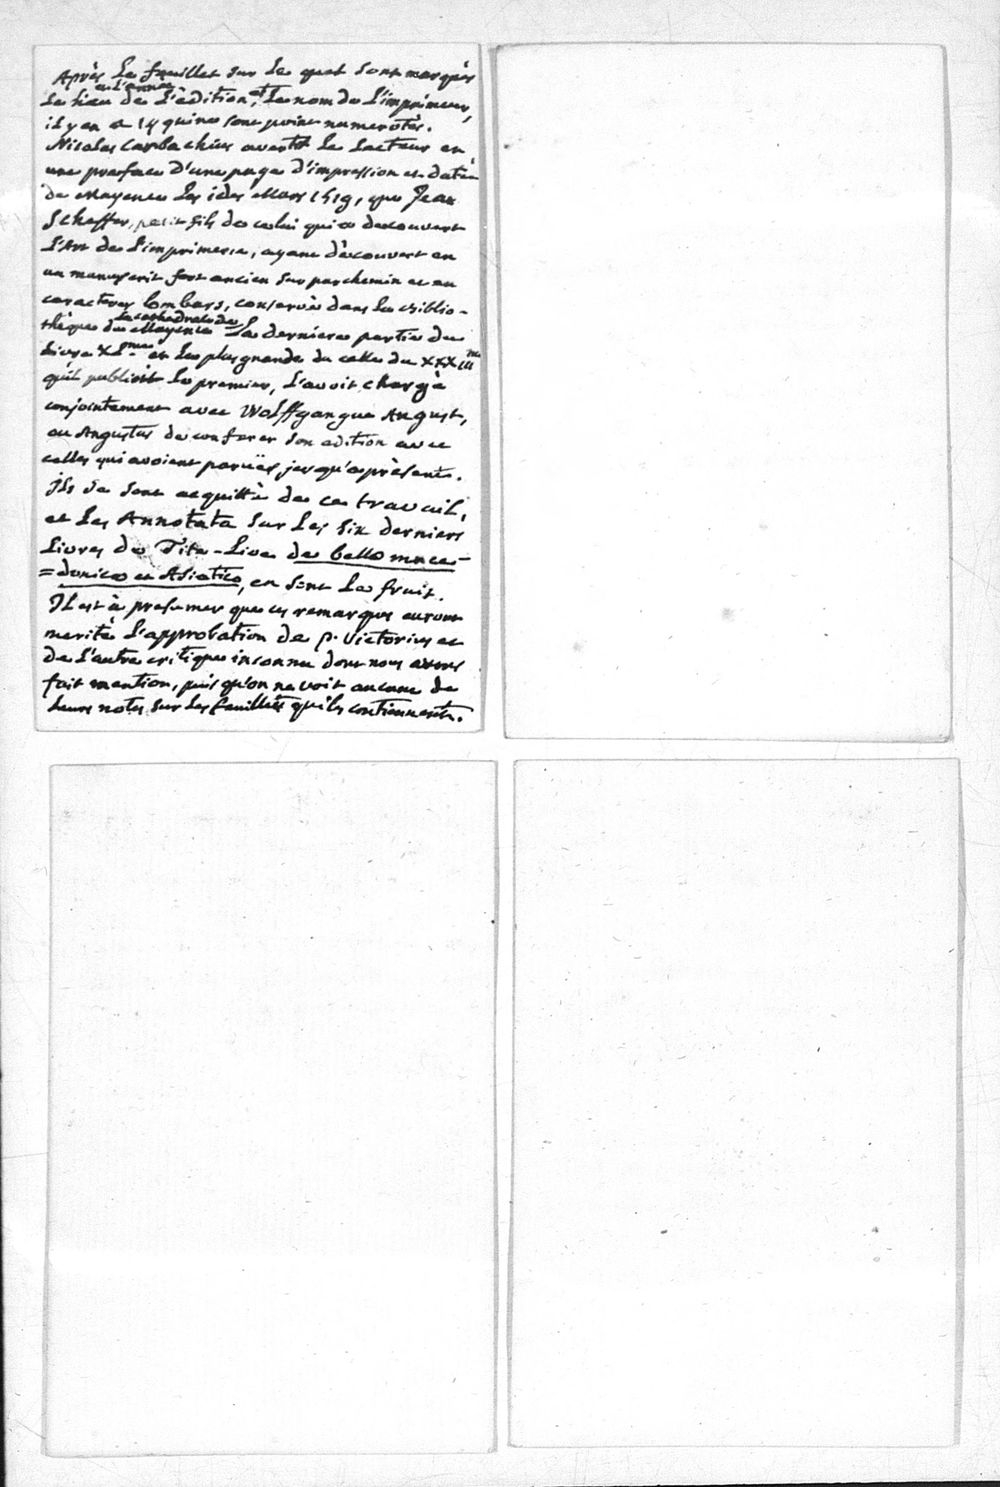 Après le feuillet sur le quel sont marqués
et l'année
le lieu de l'édition, et le nom de l'imprimeur,
il y en a 14 qui ne sont point numerotés.
Nicolas Carbachius avertit le Lecteur en
une preface d'une page d'impression et datée
de Mayence les ides Mars 1519, que Jean
Scheffer, petit fils de celui qui a decouvert
L'Art de L'imprimerie, ayant découvert en
un manuscrit fort ancien sur parchemin et en
caracteres lombars, conservés dans la Biblio-
la cathedrale de
thèque de Mayence la derniere partie du
Livre XL.me et la plus grande de celle du XXXIII me
qu'il publioit le premier, l'avoit chargé
conjointement avec Wolffgangue August,
ou Angustus de conferer son edition avec
celles qui avoient paruës jusqu'a présent.
Ils se sont acquitté de ce travail,
et les Annotata sur les six derniers
Livres de Tite-Live de bello mace-
=donico et Asiatico, en sont le fruit.
Il est à presumer que ces remarques auront
merité l'approbation de P. Victorius et
de l'autre critique inconnu dont nous avons
fait mention, puis qu'on ne voit aucune de
leurs notes sur les feuillets qui les contiennent.